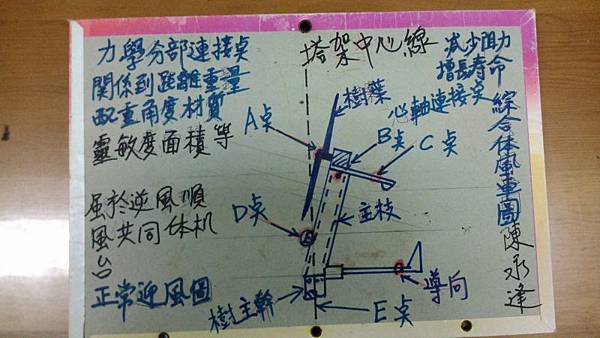 力學分部連接点
關係到距離重量
配重角度材質
靈敏度面積等
屬於逆風順
風共同体机
台
正常迎風圖
塔架中心線
減少阻力
增長壽命
綜合体風車圖
陳永逢
樹葉
心軸連接点
A点
B点
C点
D点
主枝
樹主幹
E点
導向